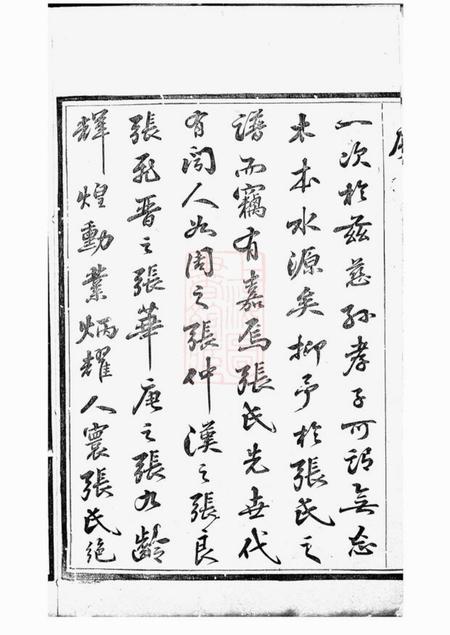 一次於茲慈孫孝子可謂無忘
木本水源矣抑予於張氏之
譜而竊有嘉焉張氏先世代
有聞人如周之張仲漢之張良
張飛晉之張華唐之張九齡
輝煌勳業炳耀人寰張氏絕